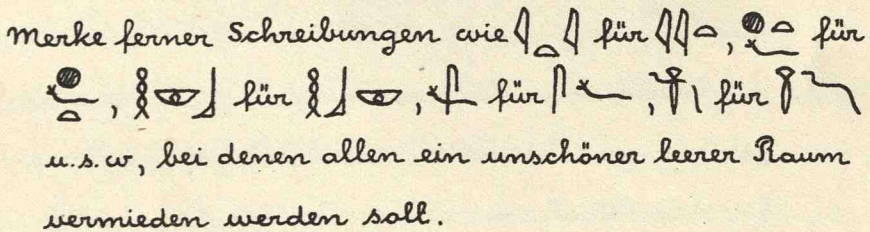 Merke ferner Schreibungen wie 𓇋𓏏𓇋 für 𓇋𓇋𓏏, 𓐍𓏏𓆑 für
𓐍𓆑𓏏, 𓎛𓎱𓃀 für 𓎛𓃀𓎱, 𓋴𓆑 für 𓋴𓆑, für
u.s.w, bei denen allen ein unschöner leerer Raum
vermieden werden soll.